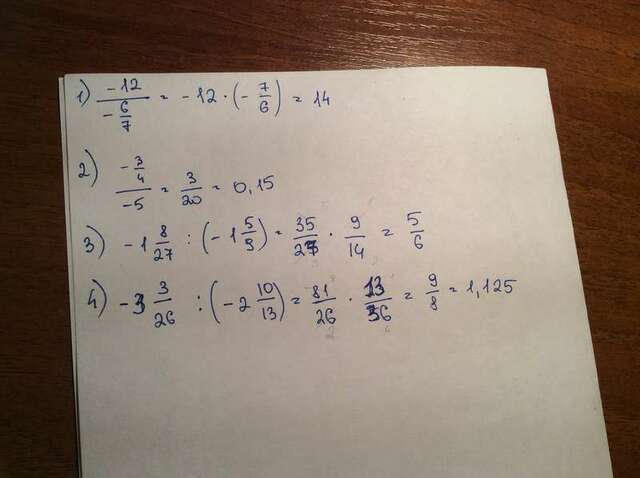 1) -12 / -6/7 = -12 · (-7/6) = 14
2) -3/4 / -5 = 3/20 = 0,15
3) -1 8/27 : (-1 5/9) = 35/27 · 9/14 = 5/6
4) -3 3/26 : (-2 10/13) = 81/26 · 13/36 = 9/8 = 1,125